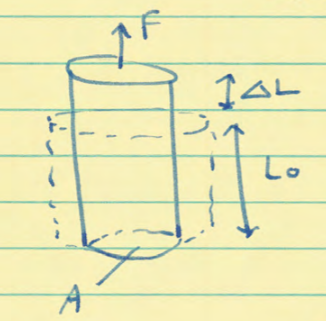 F
ΔL
L₀
A